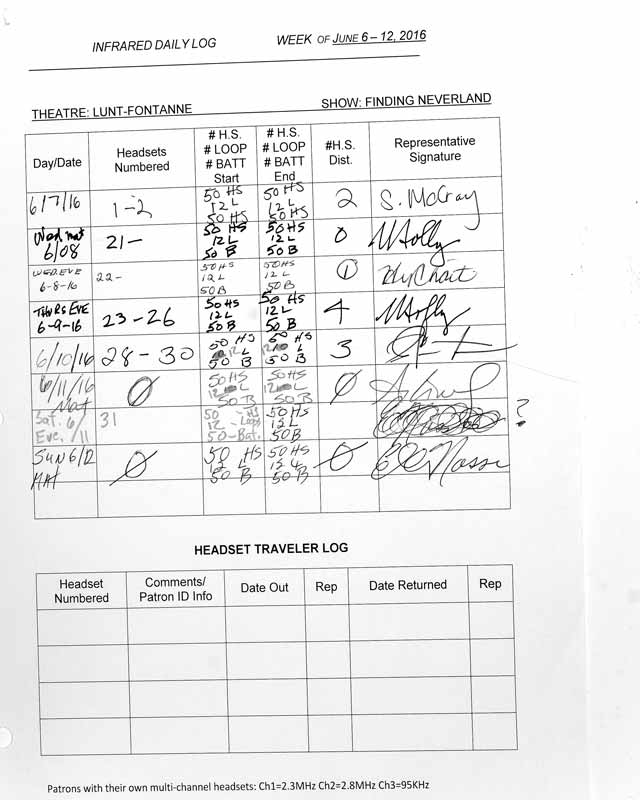 INFRARED DAILY LOG WEEK OF JUNE 6 – 12, 2016
THEATRE: LUNT-FONTANNE SHOW: FINDING NEVERLAND
Day/Date
Headsets
Numbered
# H.S.
# LOOP
# BATT
Start
# H.S.
# LOOP
# BATT
End
#H.S.
Dist.
Representative
Signature
6/7/16
1-2
50 HS
12 L
50 HS
50 HS
12 L
50 HS
2
S. McCray
Wed mat
6/08
21-
50 HS
12 L
50 B
50 HS
12 L
50 B
0
WED. EVE
6-8-16
22-
50 HS
12 L
50 B
50 HS
12 L
50 B
1
THURS EVE
6-9-16
23-26
50 HS
12 L
50 B
50 HS
12 L
50 B
4
6/10/16
28-30
50 HS
12 L
50 B
50 HS
L
50 B
3
6/11/16
Mat
0
50 HS
12 L
50 B
50 HS
12 L
50 B
0
Sat. 6/
Eve. /11
31
50 - HS
12 - Loops
50 - Bat.
50 HS
12 L
50 B
?
SUN 6/12
MAT
0
50 HS
12 L
50 B
50 HS
50 B
0
HEADSET TRAVELER LOG
Headset
Numbered
Comments/
Patron ID Info
Date Out
Rep
Date Returned
Rep
Patrons with their own multi-channel headsets: Ch1=2.3MHz Ch2=2.8MHz Ch3=95KHz